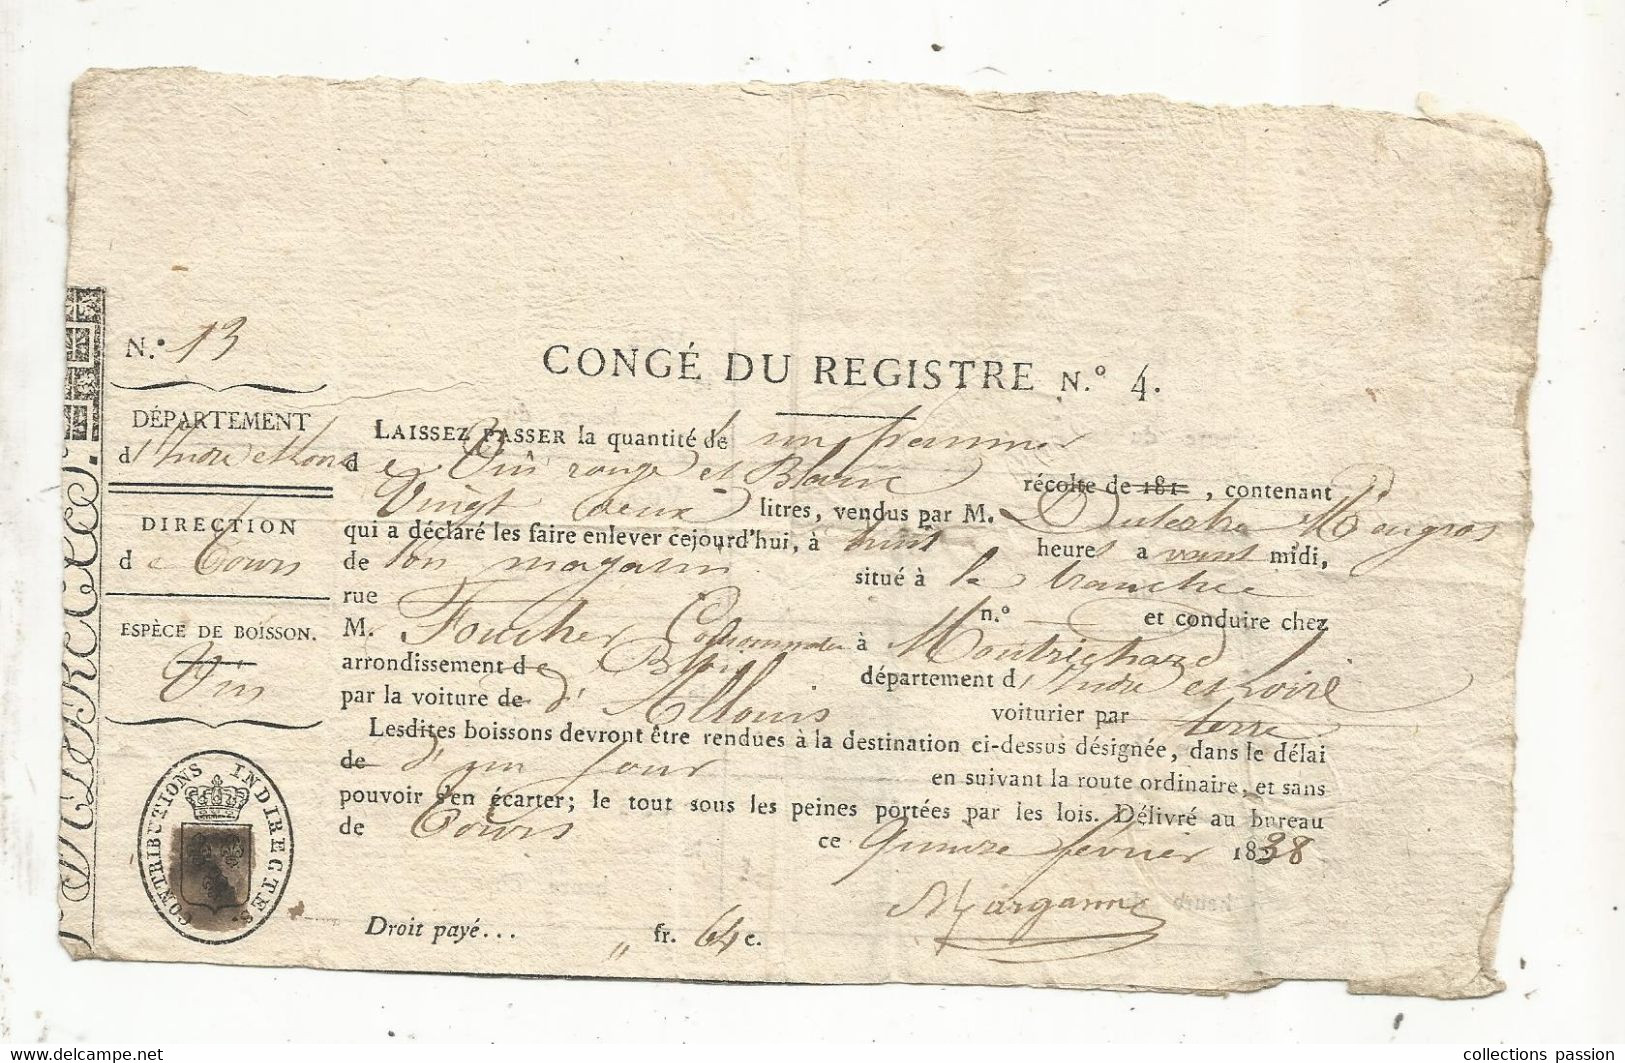 N.° 13
CONGÉ DU REGISTRE N.° 4.
DÉPARTEMENT
d'Indre et Loire
DIRECTION
de Tours
ESPÈCE DE BOISSON.
Vin
CONTRIBUTIONS INDIRECTES.
LAISSEZ PASSER la quantité de un
de Vin rouge et Blanc récolte de 181 , contenant
Vingt deux litres, vendus par M.
qui a déclaré les faire enlever cejourd'hui, à huit heures avant midi,
de son magasin situé à la tranchée
rue n.° et conduire chez
M. Foucher à Montrichard
arrondissement de Blois département d'Indre et Loire
par la voiture de voiturier par terre
Lesdites boissons devront être rendues à la destination ci-dessus désignée, dans le délai
de d'un jour en suivant la route ordinaire, et sans
pouvoir s'en écarter; le tout sous les peines portées par les lois. Délivré au bureau
de Tours ce quinze février 1838
Droit payé... " fr. 64 c.
collections passion